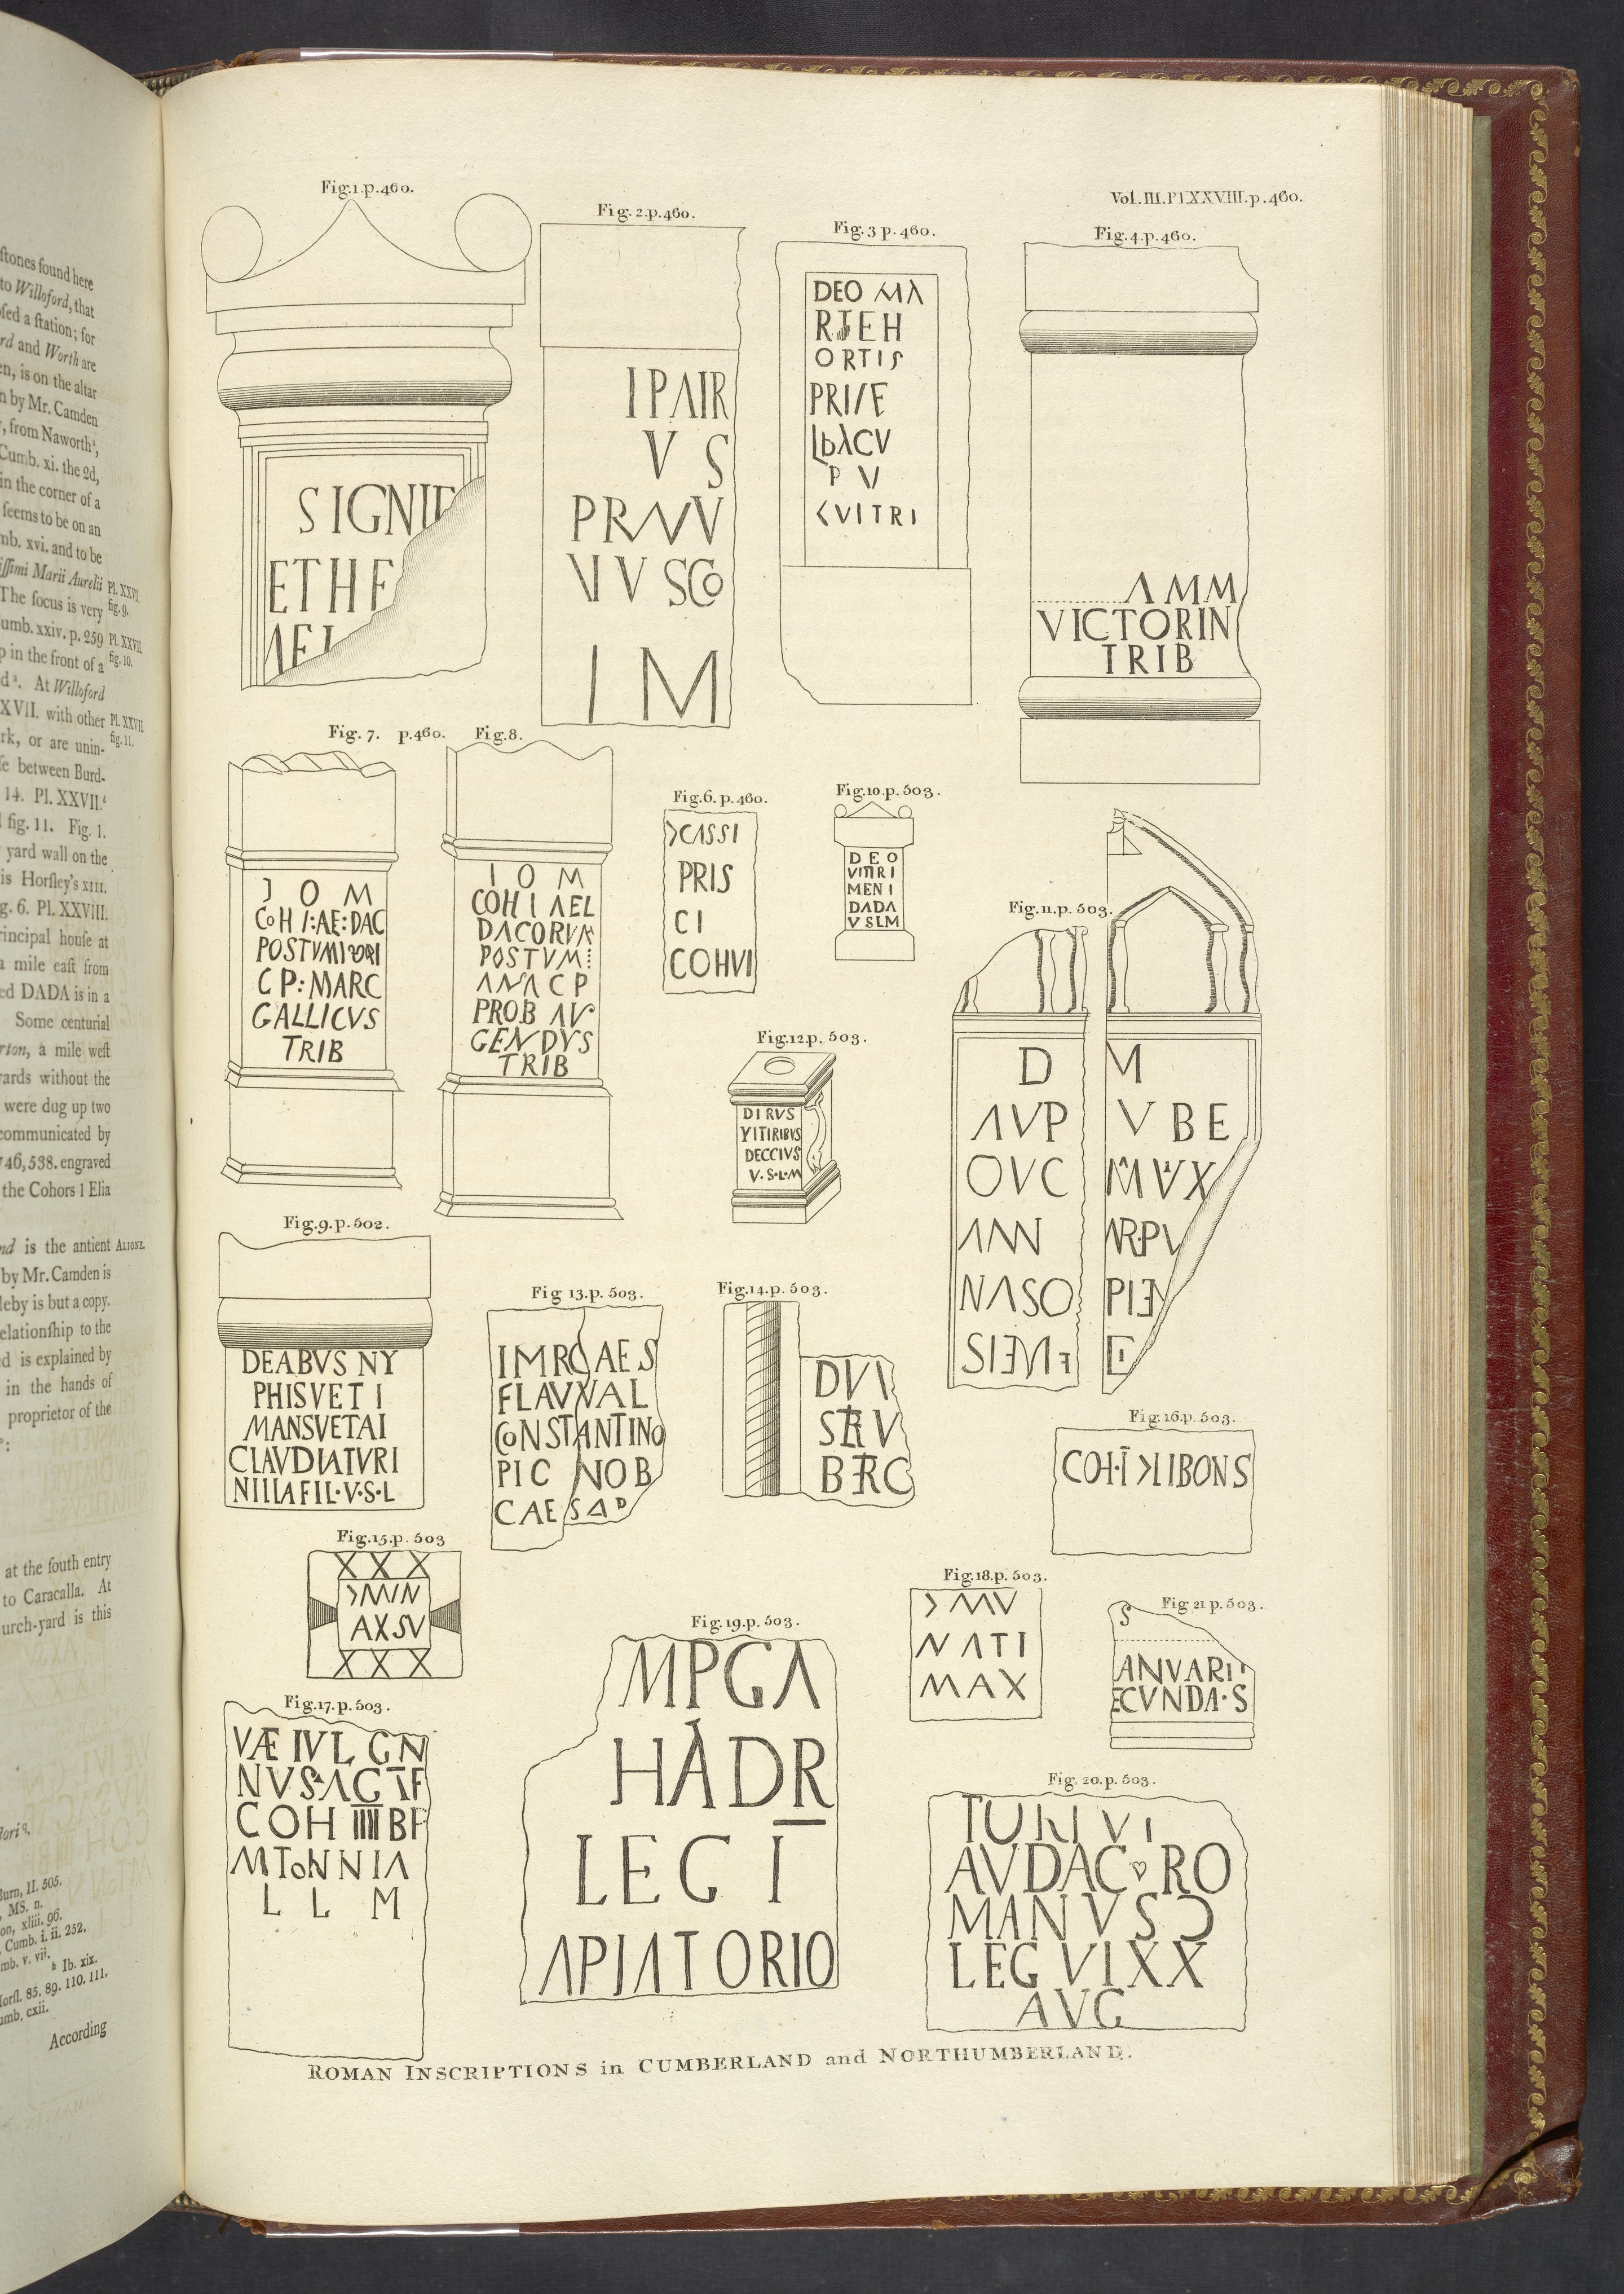 Fig.1.p.460.
SIGNIF
ETHF
AEL
Fig.2.p.460.
I PAIR
V S
V V SCo
I M
Fig.3 p.460.
DEO MA
RTEH
ORTIS
V
Vol.III.Pl.XXVIII.p.460.
Fig.4.p.460.
AMM
VICTORIN
TRIB
Fig.7. p.460.
J O M
CoH I:AE:DAC
C P:MARC
GALLICVS
TRIB
Fig.8.
I O M
COH I AEL
DACORVM
POSTVM
ANA C P
PROB AV
GENDVS
TRIB
Fig.6.p.460.
>CASSI
PRIS
CI
COHVI
Fig.10.p.503.
DEO
VITIRI
MENI
DADA
VSLM
Fig.11.p.503.
D M
AVP V BE
OVC
NASO
Fig.12.p.503.
DIRVS
VITIRIBVS
DECCIVS
V.S.L.M
Fig.9.p.502.
DEABVS NY
PHISVET I
MANSVETAI
CLAVDIATVRI
NILLAFIL·V·S·L
Fig 13.p.503.
IMRCAES
FLAVVAL
CoNSTANTINo
PIC NOB
CAESAD
Fig.14.p.503.
DVI
Fig.16.p.503.
COH·I >LIBONS
Fig.15.p.503
X X X
>MIN
AXSV
X X X
Fig.18.p.503.
>MV
NATI
MAX
Fig 21 p.503.
S
ANVARI
ECVNDA·S
Fig.17.p.503.
VÆ IVL GN
COH IIII BF
L L M
Fig.19.p.503.
MPGA
HADR
LEG I
APIATORIO
Fig. 20.p.503.
AVDAC RO
MANVS Ɔ
LEG VIXX
AVG
ROMAN INSCRIPTIONS in CUMBERLAND and NORTHUMBERLAND.
stones found here
to Willoford, that
a station; for
and Worth are
is on the altar
by Mr. Camden
from Naworth
Cumb. xi. the 2d,
in the corner of a
seems to be on an
xvi. and to be
Marii Aurelii
fig.9.
The focus is very
xxiv. p. 259 Pl.XXVII.
fig.10.
in the front of a
At Willoford
XVII. with other Pl.XXVII.
fig.11.
or are unin-
between Burd-
14. Pl.XXVII.
fig. 11. Fig. 1.
yard wall on the
is Horsley's XIII.
6. Pl. XXVIII.
principal house at
a mile east from
DADA is in a
Some centurial
a mile west
yards without the
were dug up two
communicated by
46,538. engraved
the Cohors I Elia
is the antient ALIONE.
by Mr. Camden is
is but a copy.
relationship to the
is explained by
in the hands of
proprietor of the
at the south entry
to Caracalla. At
church-yard is this
Burn, II. 505.
MS. n.
xliii. 96.
Cumb. i. ii. 252.
v. vii. h Ib. xix.
Horsl. 85. 89. 110. 111.
cxii.
According